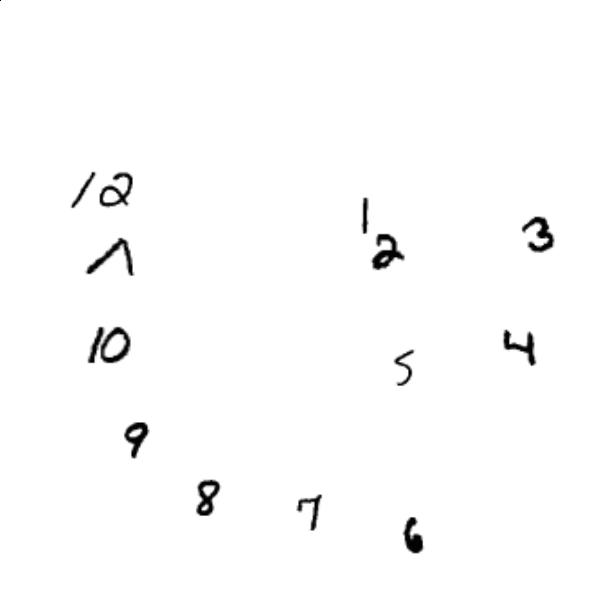 12
1
2
3
11
10
5
4
9
8
7
6